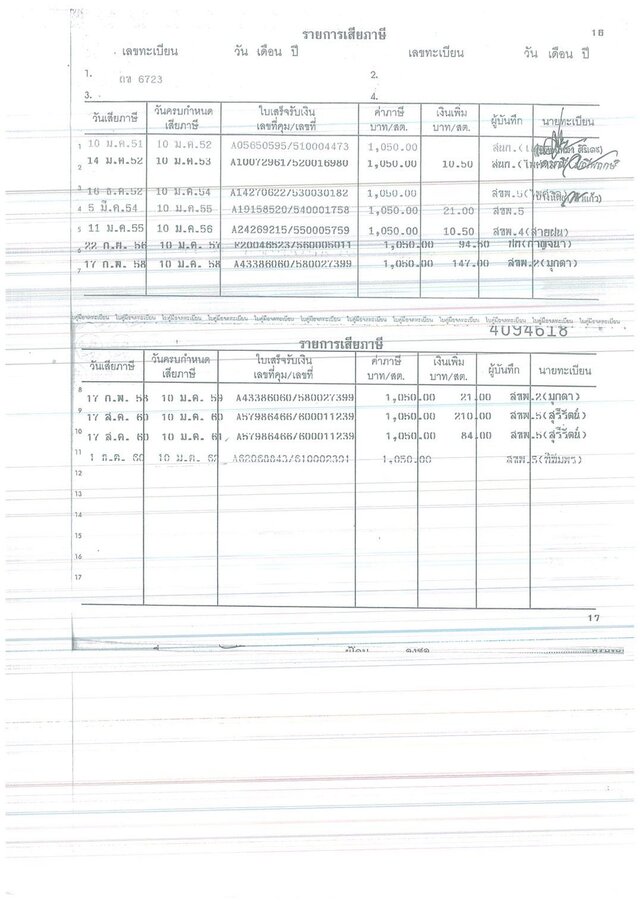 รายการเสียภาษี 16
เลขทะเบียน วัน เดือน ปี เลขทะเบียน วัน เดือน ปี
1. ถข 6723 2.
3. 4.
วันเสียภาษี วันครบกำหนดเสียภาษี ใบเสร็จรับเงิน เลขที่คุม/เลขที่ ค่าภาษี บาท/สต. เงินเพิ่ม บาท/สต. ผู้บันทึก นายทะเบียน
1 10 ม.ค.51 10 ม.ค.52 A05650595/510004473 1,050.00
2 14 ม.ค.52 10 ม.ค.53 A10072961/520016980 1,050.00 10.50
3 16 ธ.ค.52 10 ม.ค.54 A14270622/530030182 1,050.00 สขพ.5
4 5 มี.ค.54 10 ม.ค.55 A19158520/540001758 1,050.00 21.00 สขพ.5
5 11 ม.ค.55 10 ม.ค.56 A24269215/550005759 1,050.00 10.50 สขพ.4(สายฝน)
6 22 ก.พ. 56 10 ม.ค. 57 1,050.00 94.50
7 17 ก.พ. 58 10 ม.ค. 58 A43386060/580027399 1,050.00 147.00 สขพ.2(มุกดา)
ใบคู่มือจดทะเบียน ใบคู่มือจดทะเบียน ใบคู่มือจดทะเบียน ใบคู่มือจดทะเบียน ใบคู่มือจดทะเบียน ใบคู่มือจดทะเบียน ใบคู่มือจดทะเบียน ใบคู่มือจดทะเบียน
4094618
รายการเสียภาษี
วันเสียภาษี วันครบกำหนดเสียภาษี ใบเสร็จรับเงิน เลขที่คุม/เลขที่ ค่าภาษี บาท/สต. เงินเพิ่ม บาท/สต. ผู้บันทึก นายทะเบียน
8 17 ก.พ. 58 10 ม.ค. 59 A43386060/580027399 1,050.00 21.00 สขพ.2(มุกดา)
9 17 ส.ค. 60 10 ม.ค. 60 A57986466/600011239 1,050.00 210.00 สขพ.5(สุรีรัตน์)
10 17 ส.ค. 60 10 ม.ค. 61 A57986466/600011239 1,050.00 84.00 สขพ.5(สุรีรัตน์)
11 10 ม.ค. 62 1,050.00
12
13
14
15
16
17
17